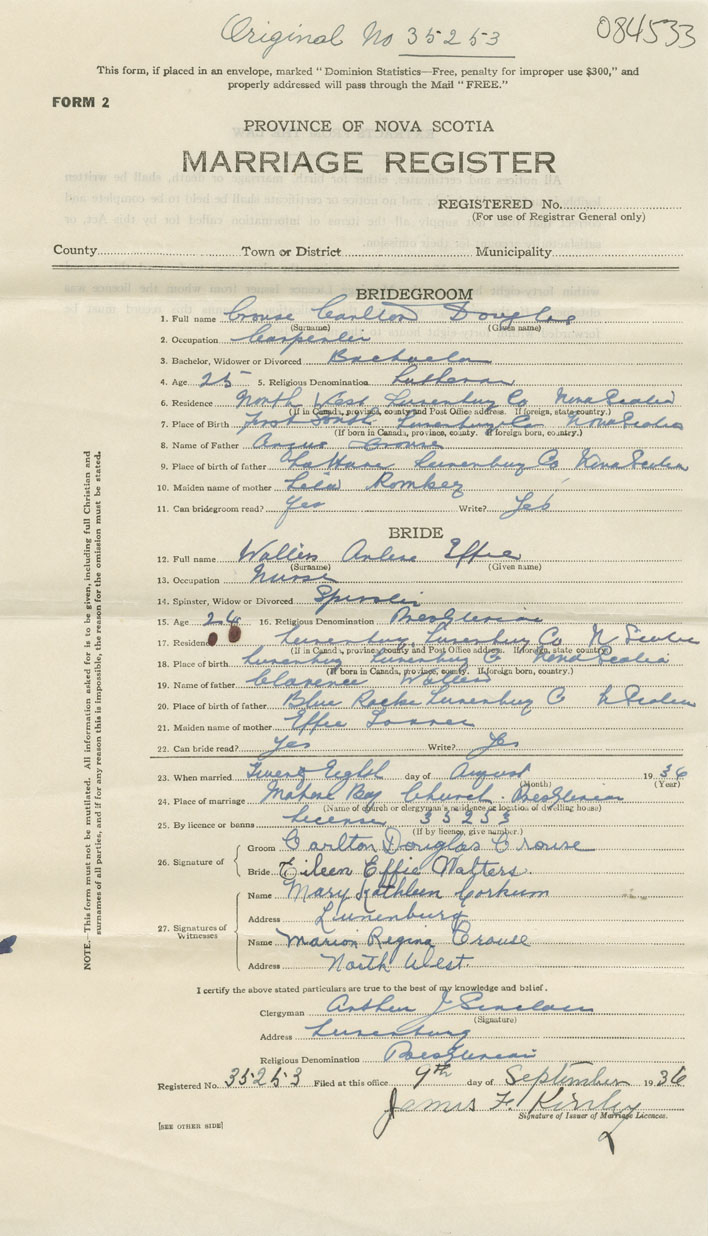 Original No 35253
084533
This form, if placed in an envelope, marked "Dominion Statistics—Free, penalty for improper use $300," and
properly addressed will pass through the Mail "FREE."
FORM 2
PROVINCE OF NOVA SCOTIA
MARRIAGE REGISTER
REGISTERED No.
(For use of Registrar General only)
County Town or District Municipality
BRIDEGROOM
1. Full name Crouse Carlton Douglas
(Surname) (Given name)
2. Occupation Carpenter
3. Bachelor, Widower or Divorced Bachelor
4. Age 25 5. Religious Denomination Lutheran
6. Residence North West Lunenburg Co Nova Scotia
(If in Canada, province, county and Post Office address. If foreign, state country.)
7. Place of Birth First South Lunenburg Co Nova Scotia
(If born in Canada, province, county. If foreign born, country.)
8. Name of Father Angus Crouse
9. Place of birth of father LaHave Lunenburg Co Nova Scotia
10. Maiden name of mother Romkey
11. Can bridegroom read? Yes Write? Yes
BRIDE
12. Full name Walters Effie
(Surname) (Given name)
13. Occupation Nurse
14. Spinster, Widow or Divorced Spinster
15. Age 24 16. Religious Denomination Presbyterian
17. Residence Lunenburg Lunenburg Co N Scotia
(If in Canada, province, county and Post Office address. If foreign, state country.)
18. Place of birth Lunenburg Lunenburg C Nova Scotia
(If born in Canada, province, county. If foreign born, country.)
19. Name of father Clarence Walters
20. Place of birth of father Blue Rocks Lunenburg C N Scotia
21. Maiden name of mother Effie
22. Can bride read? Yes Write? Yes
23. When married Twenty Eight day of August 1936
(Month) (Year)
24. Place of marriage Mahone Bay Church Presbyterian
(Name of church or clergyman's residence or location of dwelling house)
25. By licence or banns License 35253
(If by licence, give number.)
26. Signature of
Groom Carlton Douglas Crouse
Bride Eileen Effie Walters.
27. Signatures of Witnesses
Name Mary Kathleen Corkum
Address Lunenburg
Name Marion Regina Crouse
Address North West.
I certify the above stated particulars are true to the best of my knowledge and belief.
Clergyman Arthur J Sinclair
(Signature)
Address Lunenburg
Religious Denomination Presbyterian
Registered No. 35253 Filed at this office 9th day of September 1936
James F. Kinley
Signature of Issuer of Marriage Licences.
[SEE OTHER SIDE]
NOTE.—This form must not be mutilated. All information asked for is to be given, including full Christian and
surnames of all parties, and if for any reason this is impossible, the reason for the omission must be stated.